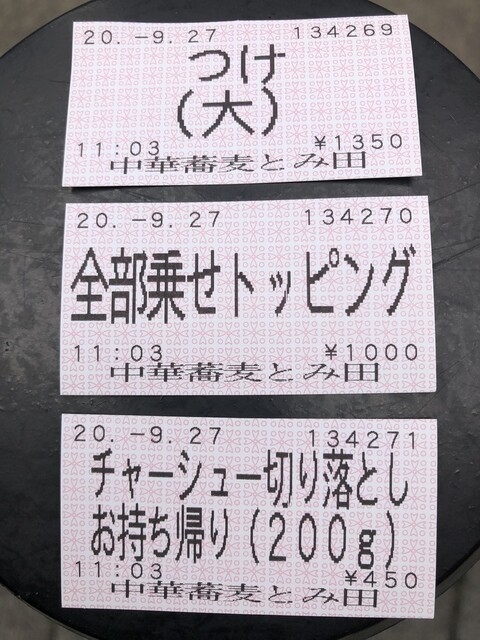 20.-9.27 134269
つけ
(大)
11:03 ¥1350
中華蕎麦とみ田
20.-9.27 134270
全部乗せトッピング
11:03 ¥1000
中華蕎麦とみ田
20.-9.27 134271
チャーシュー切り落とし
お持ち帰り(200g)
11:03 ¥450
中華蕎麦とみ田